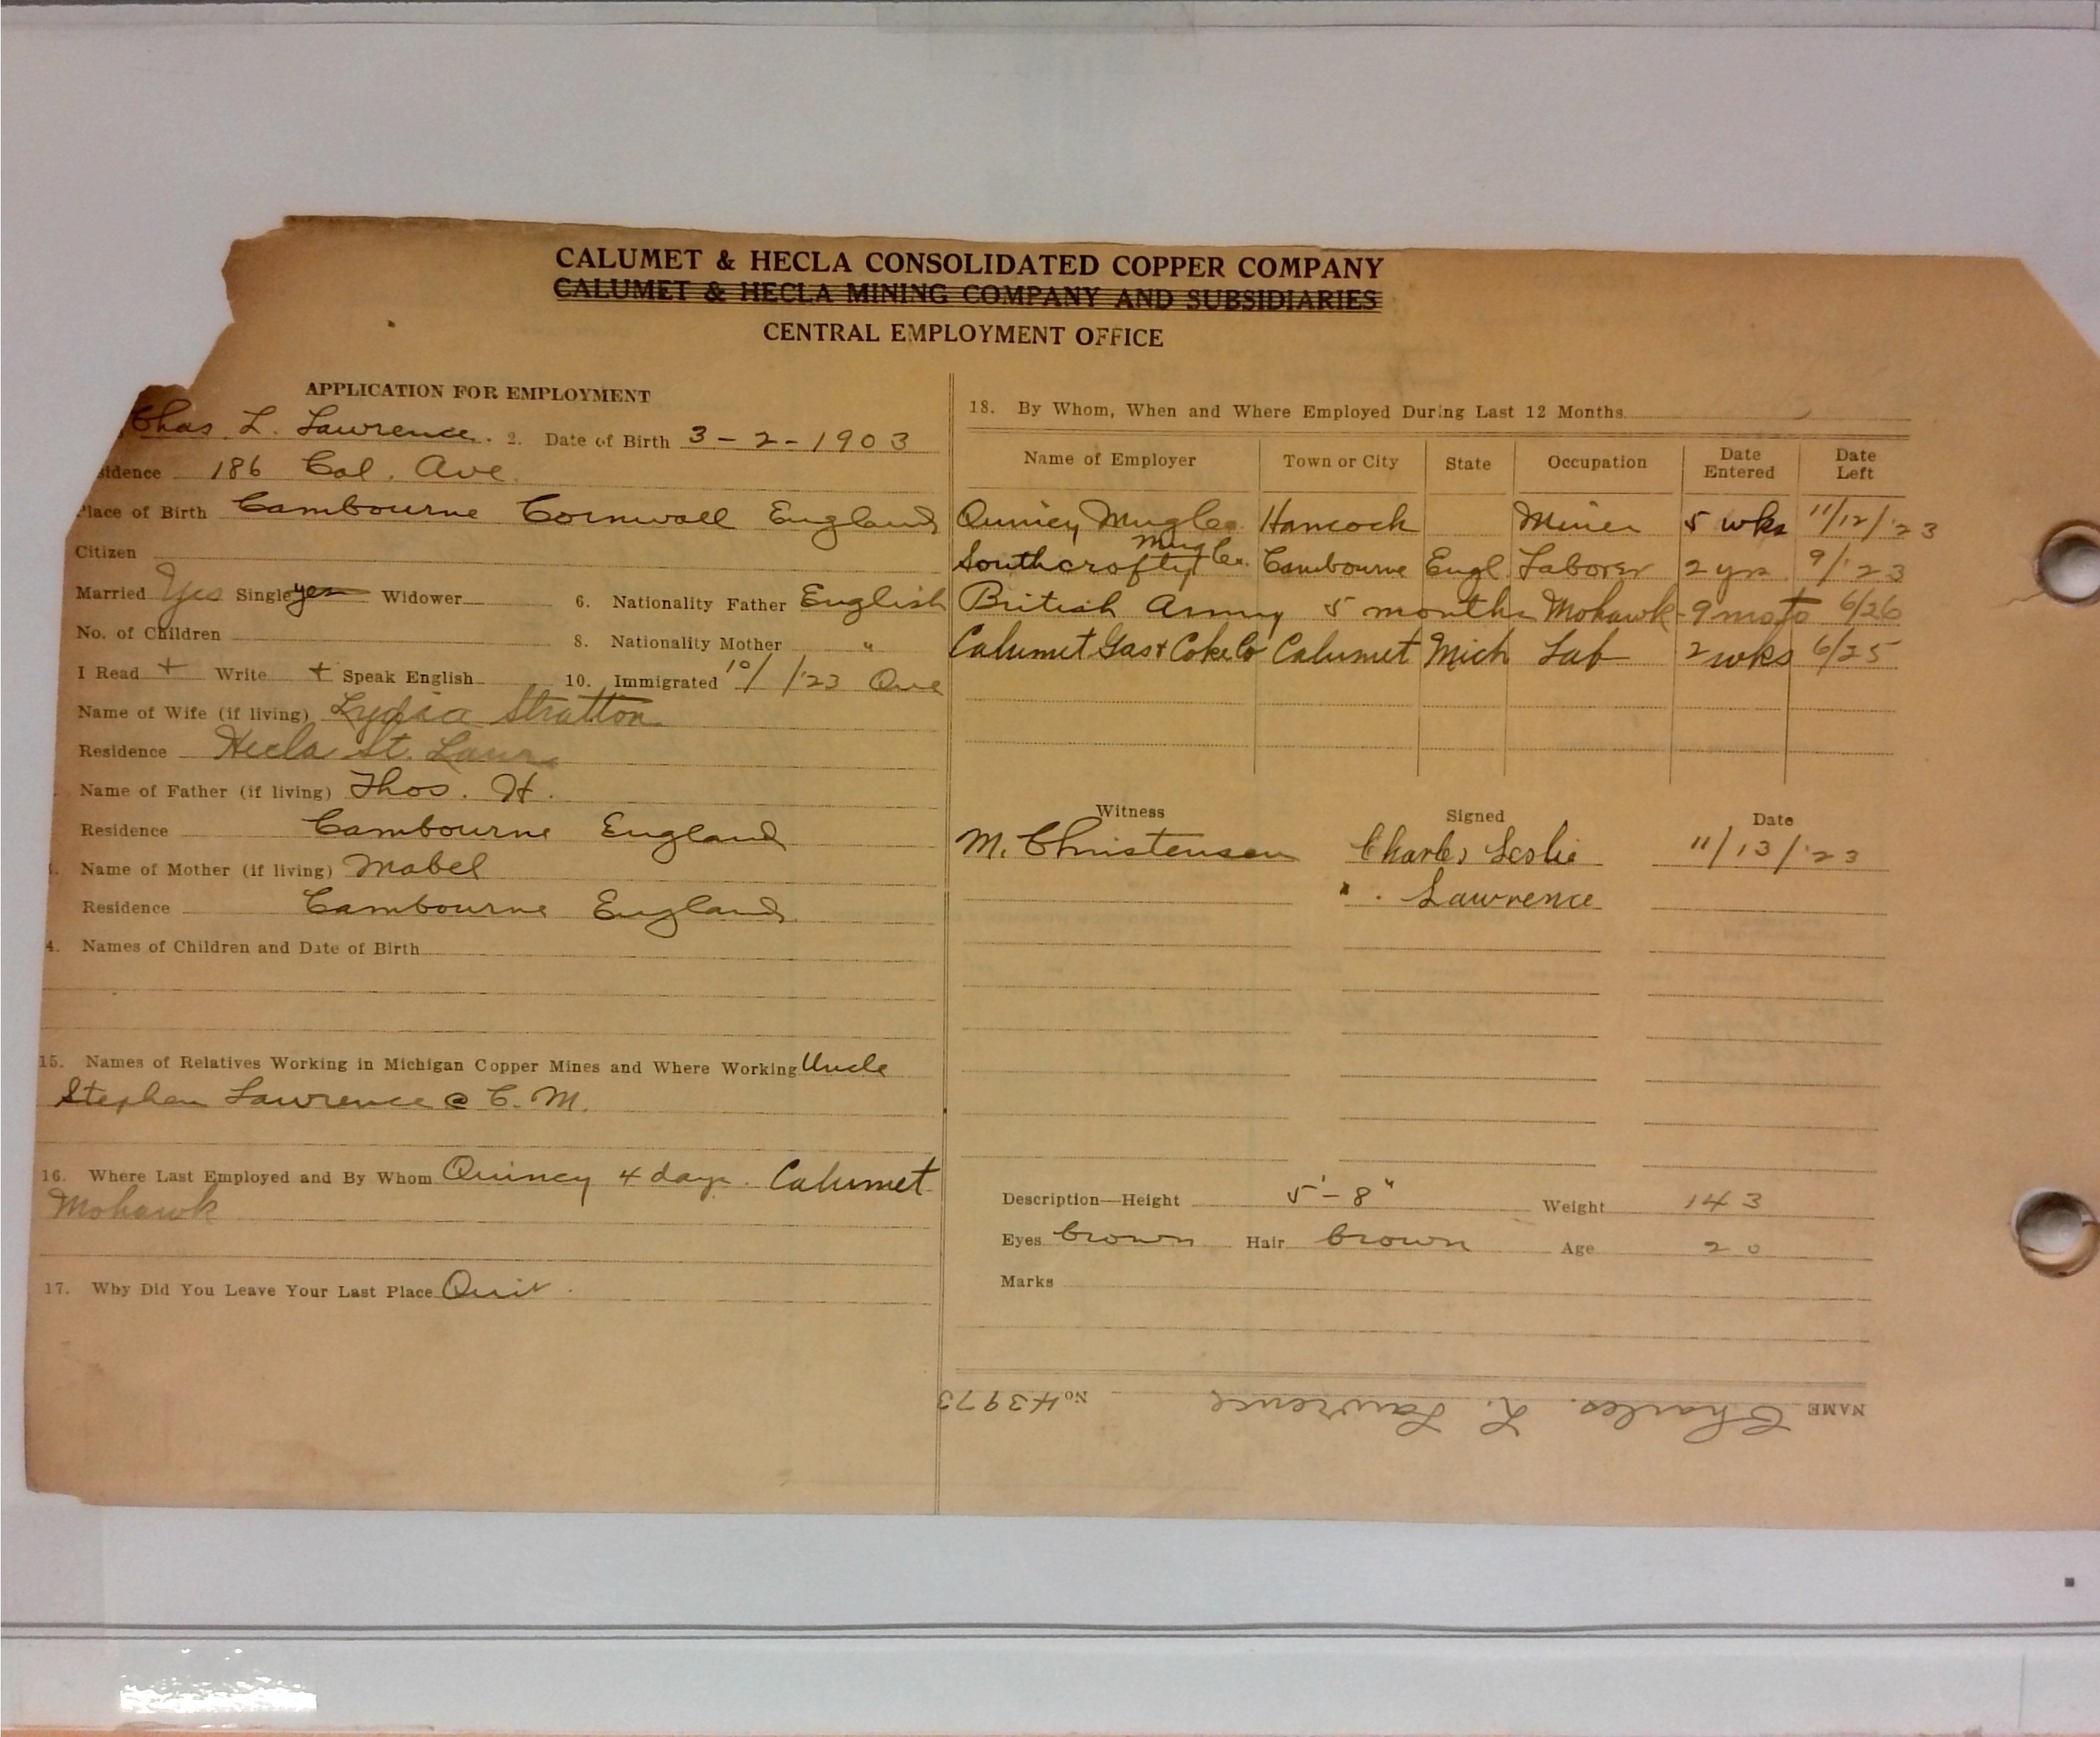 CALUMET & HECLA CONSOLIDATED COPPER COMPANY
CALUMET & HECLA MINING COMPANY AND SUBSIDIARIES
CENTRAL EMPLOYMENT OFFICE
APPLICATION FOR EMPLOYMENT
Chas. L. Lawrence. 2. Date of Birth 3-2-1903
sidence 186 Cal. Ave.
Place of Birth Cambourne Cornwall England
Citizen
Married Yes Single yes Widower 6. Nationality Father English
No. of Children 8. Nationality Mother "
I Read + Write + Speak English 10. Immigrated 10/ /'23 Que
Name of Wife (if living) Lydia Stratton
Residence Hecla St. Laur.
Name of Father (if living) Thos. H.
Residence Cambourne England
Name of Mother (if living) Mabel
Residence Cambourne England
4. Names of Children and Date of Birth
15. Names of Relatives Working in Michigan Copper Mines and Where Working Uncle
Stephen Lawrence @ C. M.
16. Where Last Employed and By Whom Quincy 4 days. Calumet
Mohawk
17. Why Did You Leave Your Last Place Quit.
18. By Whom, When and Where Employed During Last 12 Months
Name of Employer Town or City State Occupation Date Entered Date Left
Quincy Mng Co. Hancock Miner 5 wks 11/12/'23
Southcrofty Mng Co. Cambourne Engl. Laborer 2 yrs. 9/'23
British Army 5 months Mohawk-9 mos to 6/26
Calumet Gas & Coke Co Calumet Mich Lab 2 wks 6/25
Witness Signed Date
M. Christensen Charles Leslie 11/13/'23
Lawrence
Description—Height 5'-8" Weight 143
Eyes brown Hair brown Age 20
Marks
NAME Charles. L. Lawrence No 43973